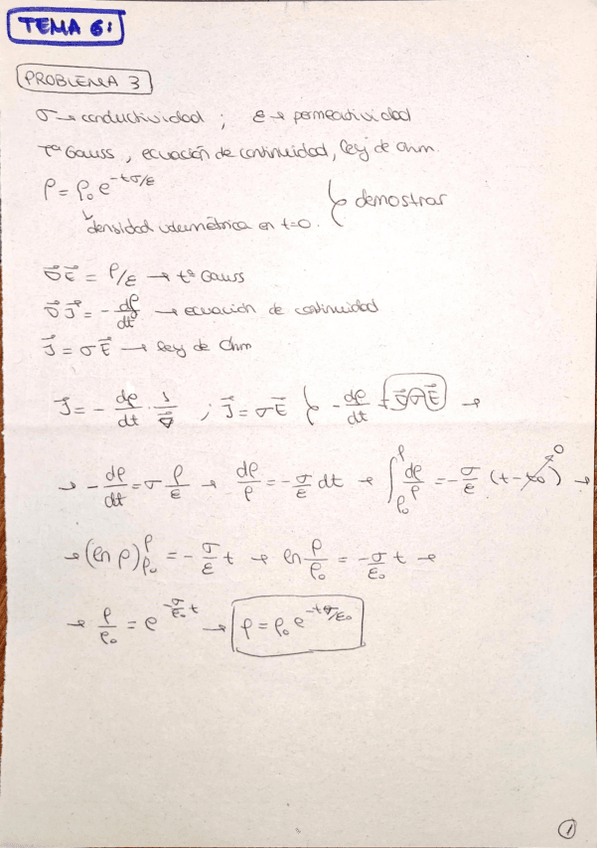 TEMA 6:
PROBLEMA 3
σ → conductividad ; ε → permeactividad
Tª Gauss, ecuación de continuidad, ley de Ohm.
ρ = ρ₀ e^(-tσ/ε) } demostrar
densidad volumétrica en t=0.
∇⃗E⃗ = ρ/ε → tª Gauss
∇⃗J⃗ = - dρ/dt → ecuación de continuidad
J⃗ = σE⃗ → ley de Ohm
J⃗ = - dρ/dt · 1/∇⃗ ; J⃗ = σE⃗ } - dρ/dt = ∇⃗σE⃗ →
→ - dρ/dt = σ ρ/ε → dρ/ρ = - σ/ε dt → ∫_ρ₀^ρ dρ/ρ = - σ/ε (t - t₀) → 0
→ (ln ρ)_ρ₀^ρ = - σ/ε t → ln ρ/ρ₀ = - σ/ε₀ t →
→ ρ/ρ₀ = e^(-σ/ε₀ t) → ρ = ρ₀ e^(-tσ/ε₀)
1